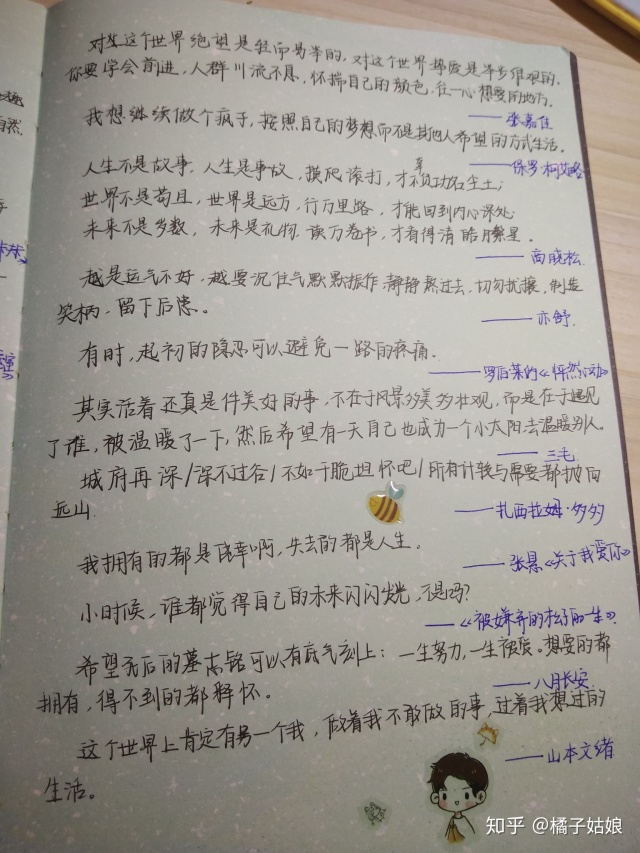 对这个世界绝望是轻而易举的，对这个世界挚爱是举步维艰的。
你要学会前进，人群川流不息，怀揣自己的颜色，往一心想要的地方。
——张嘉佳
我想继续做个疯子，按照自己的梦想而不是其他人希望的方式生活。
——保罗·柯艾略
人生不是故事，人生是事故，摸爬滚打，才不负功名尘土；
世界不是苟且，世界是远方，行万里路，才能回到内心深处
未来不是多数，未来是礼物 读万卷书，才看得清皓月繁星。
——高晓松
越是运气不好，越要沉住气默默振作，静静熬过去，切勿扰攘，制造
笑柄，留下后患。
——亦舒
有时，起初的隐忍可以避免一路的疼痛。
——罗启莱的《怦然心动》
其实活着还真是件美好的事，不在于风景多美多壮观，而是在于遇见
了谁，被温暖了一下，然后希望有一天自己也成为一个小太阳去温暖别人。
——三毛
城府再深/深不过谷/不如干脆坦怀吧/所有计较与需要都抛向
远山
——扎西拉姆·多多
我拥有的都是侥幸啊，失去的都是人生。
——张悬《关于我爱你》
小时候，谁都觉得自己的未来闪闪发光，不是吗？
——《被嫌弃的松子的一生》
希望死后的墓志铭可以有底气刻上：一生努力，一生被爱。想要的都
拥有，得不到的都释怀。
——八月长安
这个世界上肯定有另一个我，做着我不敢做的事，过着我想过的
生活。
——山本文绪
知乎 @橘子姑娘